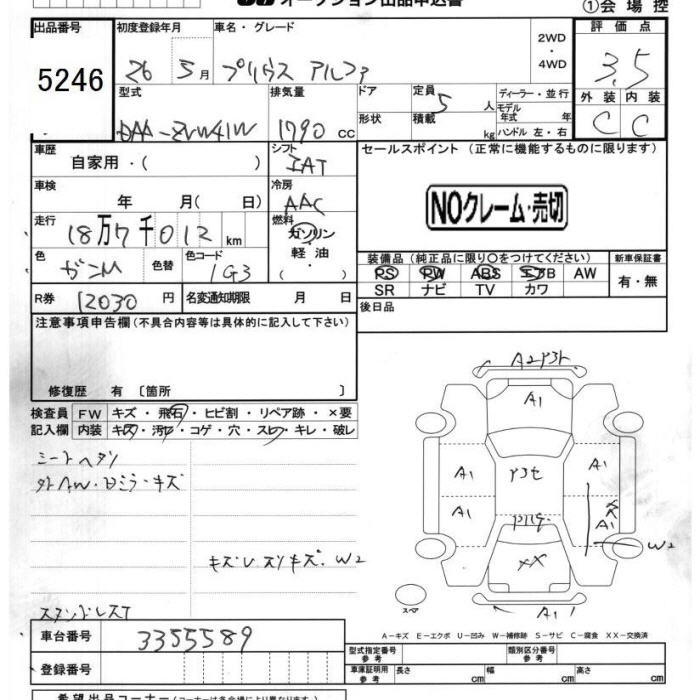 オークション出品申込書
①会場控
出品番号 初度登録年月 車名・グレード 2WD・4WD 評価点
5246 26 5月 プリウス アルファ 3.5
型式 排気量 ドア 定員 5人 ディーラー・並行 外装 内装
DAA-ZVW41W 1790 cc 形状 積載 kg モデル年式 年 ハンドル 左・右 C C
車歴 自家用・( ) シフト IAT セールスポイント (正常に機能するものに限ります)
車検 年 月( 日) 冷房 AAC
NOクレーム・売切
走行 18万7千012km 燃料 ガソリン 軽油 ・( )
色 ガンM 色替 色コード 1G3
装備品 (純正品に限り○をつけてください) 新車保証書
PS PW ABS エアB AW 有・無
SR ナビ TV カワ
R券 12030円 名変通知期限 月 日 後日品
注意事項申告欄(不具合内容等は具体的に記入して下さい)
修復歴 有 〔箇所 〕
検査員 FW キズ・飛石・ヒビ割・リペア跡・×要
記入欄 内装 キズ・汚レ・コゲ・穴・スレ・キレ・破レ
シートヘタリ
外AW・ドミラーキズ
キズU スリキズ・W2
スタンドレスT
A1
A1
A1
A1
A1
XX
W2
A1
スペア
A-キズ E-エクボ U-凹み W-補修跡 S-サビ C-腐食 XX-交換済
車台番号 3355589 型式指定番号 参考 類別区分番号 参考
登録番号 車庫証明用 参考 長さ cm 幅 cm 高さ cm
希望出品コーナー(コーナーは各会場により異なります)